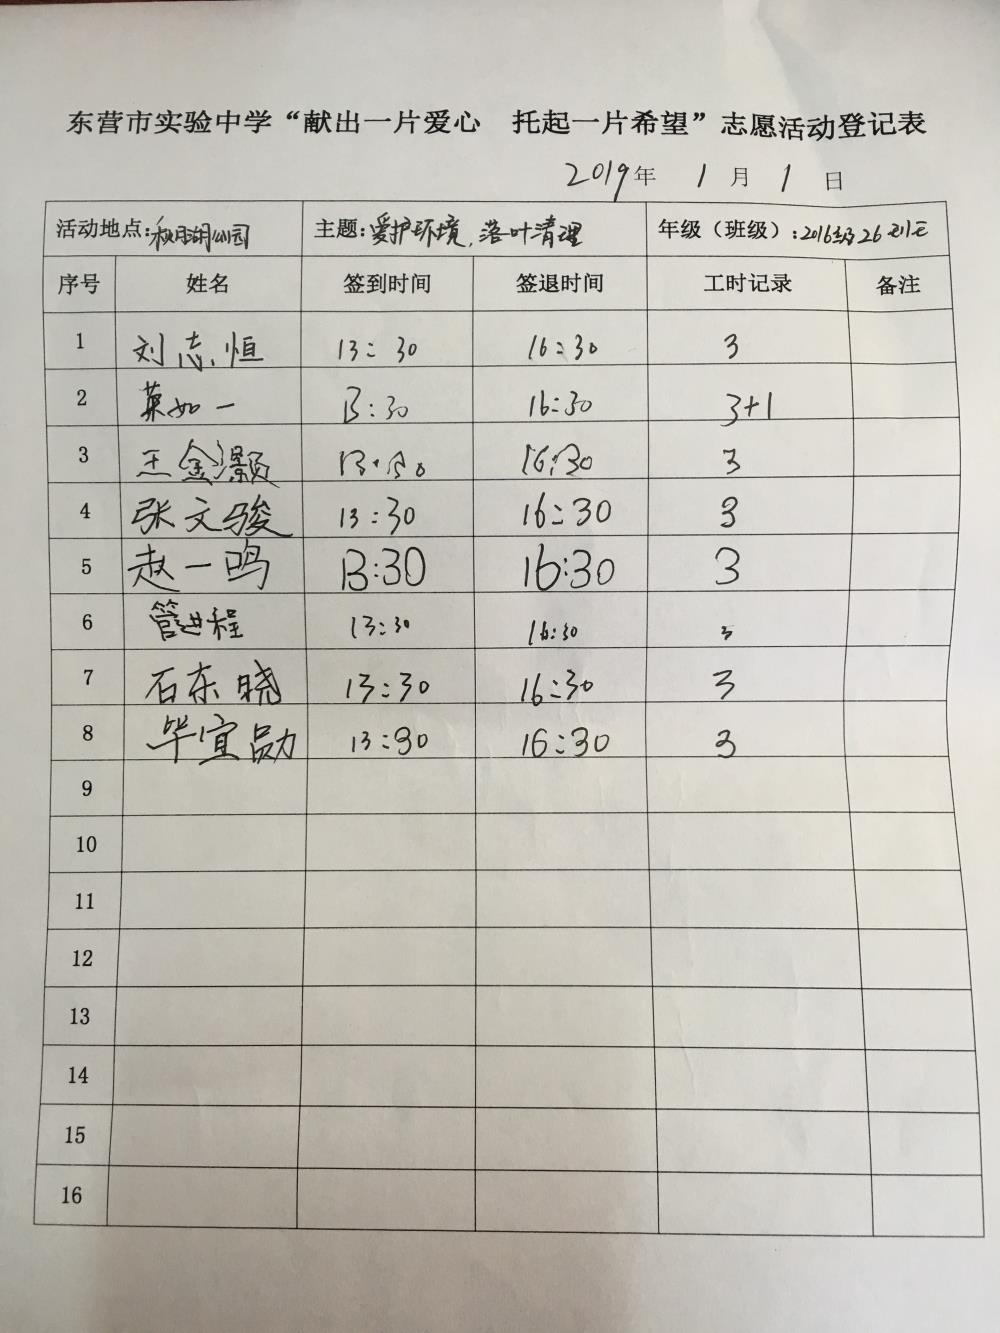 东营市实验中学“献出一片爱心 托起一片希望”志愿活动登记表
2019年 1月 1日
活动地点:秋月湖公园 主题:爱护环境,落叶清理 年级（班级）:2016级26
序号 姓名 签到时间 签退时间 工时记录 备注
1 刘志恒 13:30 16:30 3
2 如一 13:30 16:30 3+1
3 王金灏 13:30 16:30 3
4 张文骏 13:30 16:30 3
5 赵一鸣 13:30 16:30 3
6 管进程 13:30 16:30 3
7 石东晓 13:30 16:30 3
8 毕宜勋 13:30 16:30 3
9
10
11
12
13
14
15
16